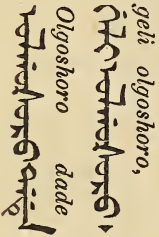 geli olgoshoro,
ᡤᡝᠯᡳ ᠣᠯᡤᠣᡧᠣᡵᠣ᠈
Olgoshoro dade
ᠣᠯᡤᠣᡧᠣᡵᠣ ᡩᠠᡩᡝ